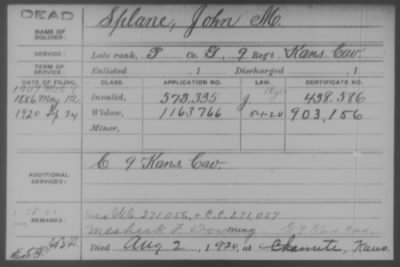 DEAD
NAME OF SOLDIER: Splane, John M.
SERVICE: Late rank, P Co. G, 9 Reg't Kans. Cav.
TERM OF SERVICE: Enlisted , 1 Discharged , 1
DATE OF FILING. CLASS. APPLICATION NO. LAW. CERTIFICATE NO.
1886 May 12 Invalid, 573.335 J 438.586
1920 Sep 24 Widow, 1163766 5-1-20 903,156
Minor,
ADDITIONAL SERVICES: C 9 Kans Cav.
REMARKS: C.C. 271,057
G 9 Kan Cav.
Died Aug 2, 1920, at Chanute, Kans.